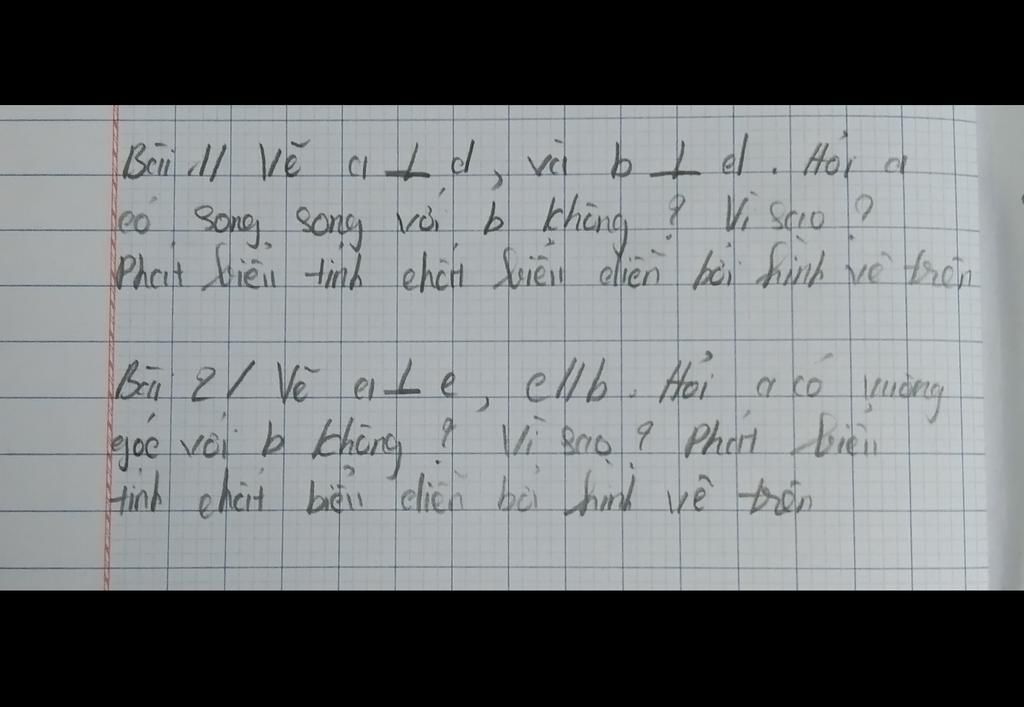 Bài 1/ Vẽ a ⊥ d, và b ⊥ d. Hỏi a
có song song với b không ? Vì sao ?
Phát biểu tính chất biểu diễn bởi hình vẽ trên
Bài 2/ Vẽ a ⊥ c, c//b. Hỏi a có vuông
góc với b không ? Vì sao ? Phát biểu
tính chất biểu diễn bởi hình vẽ trên